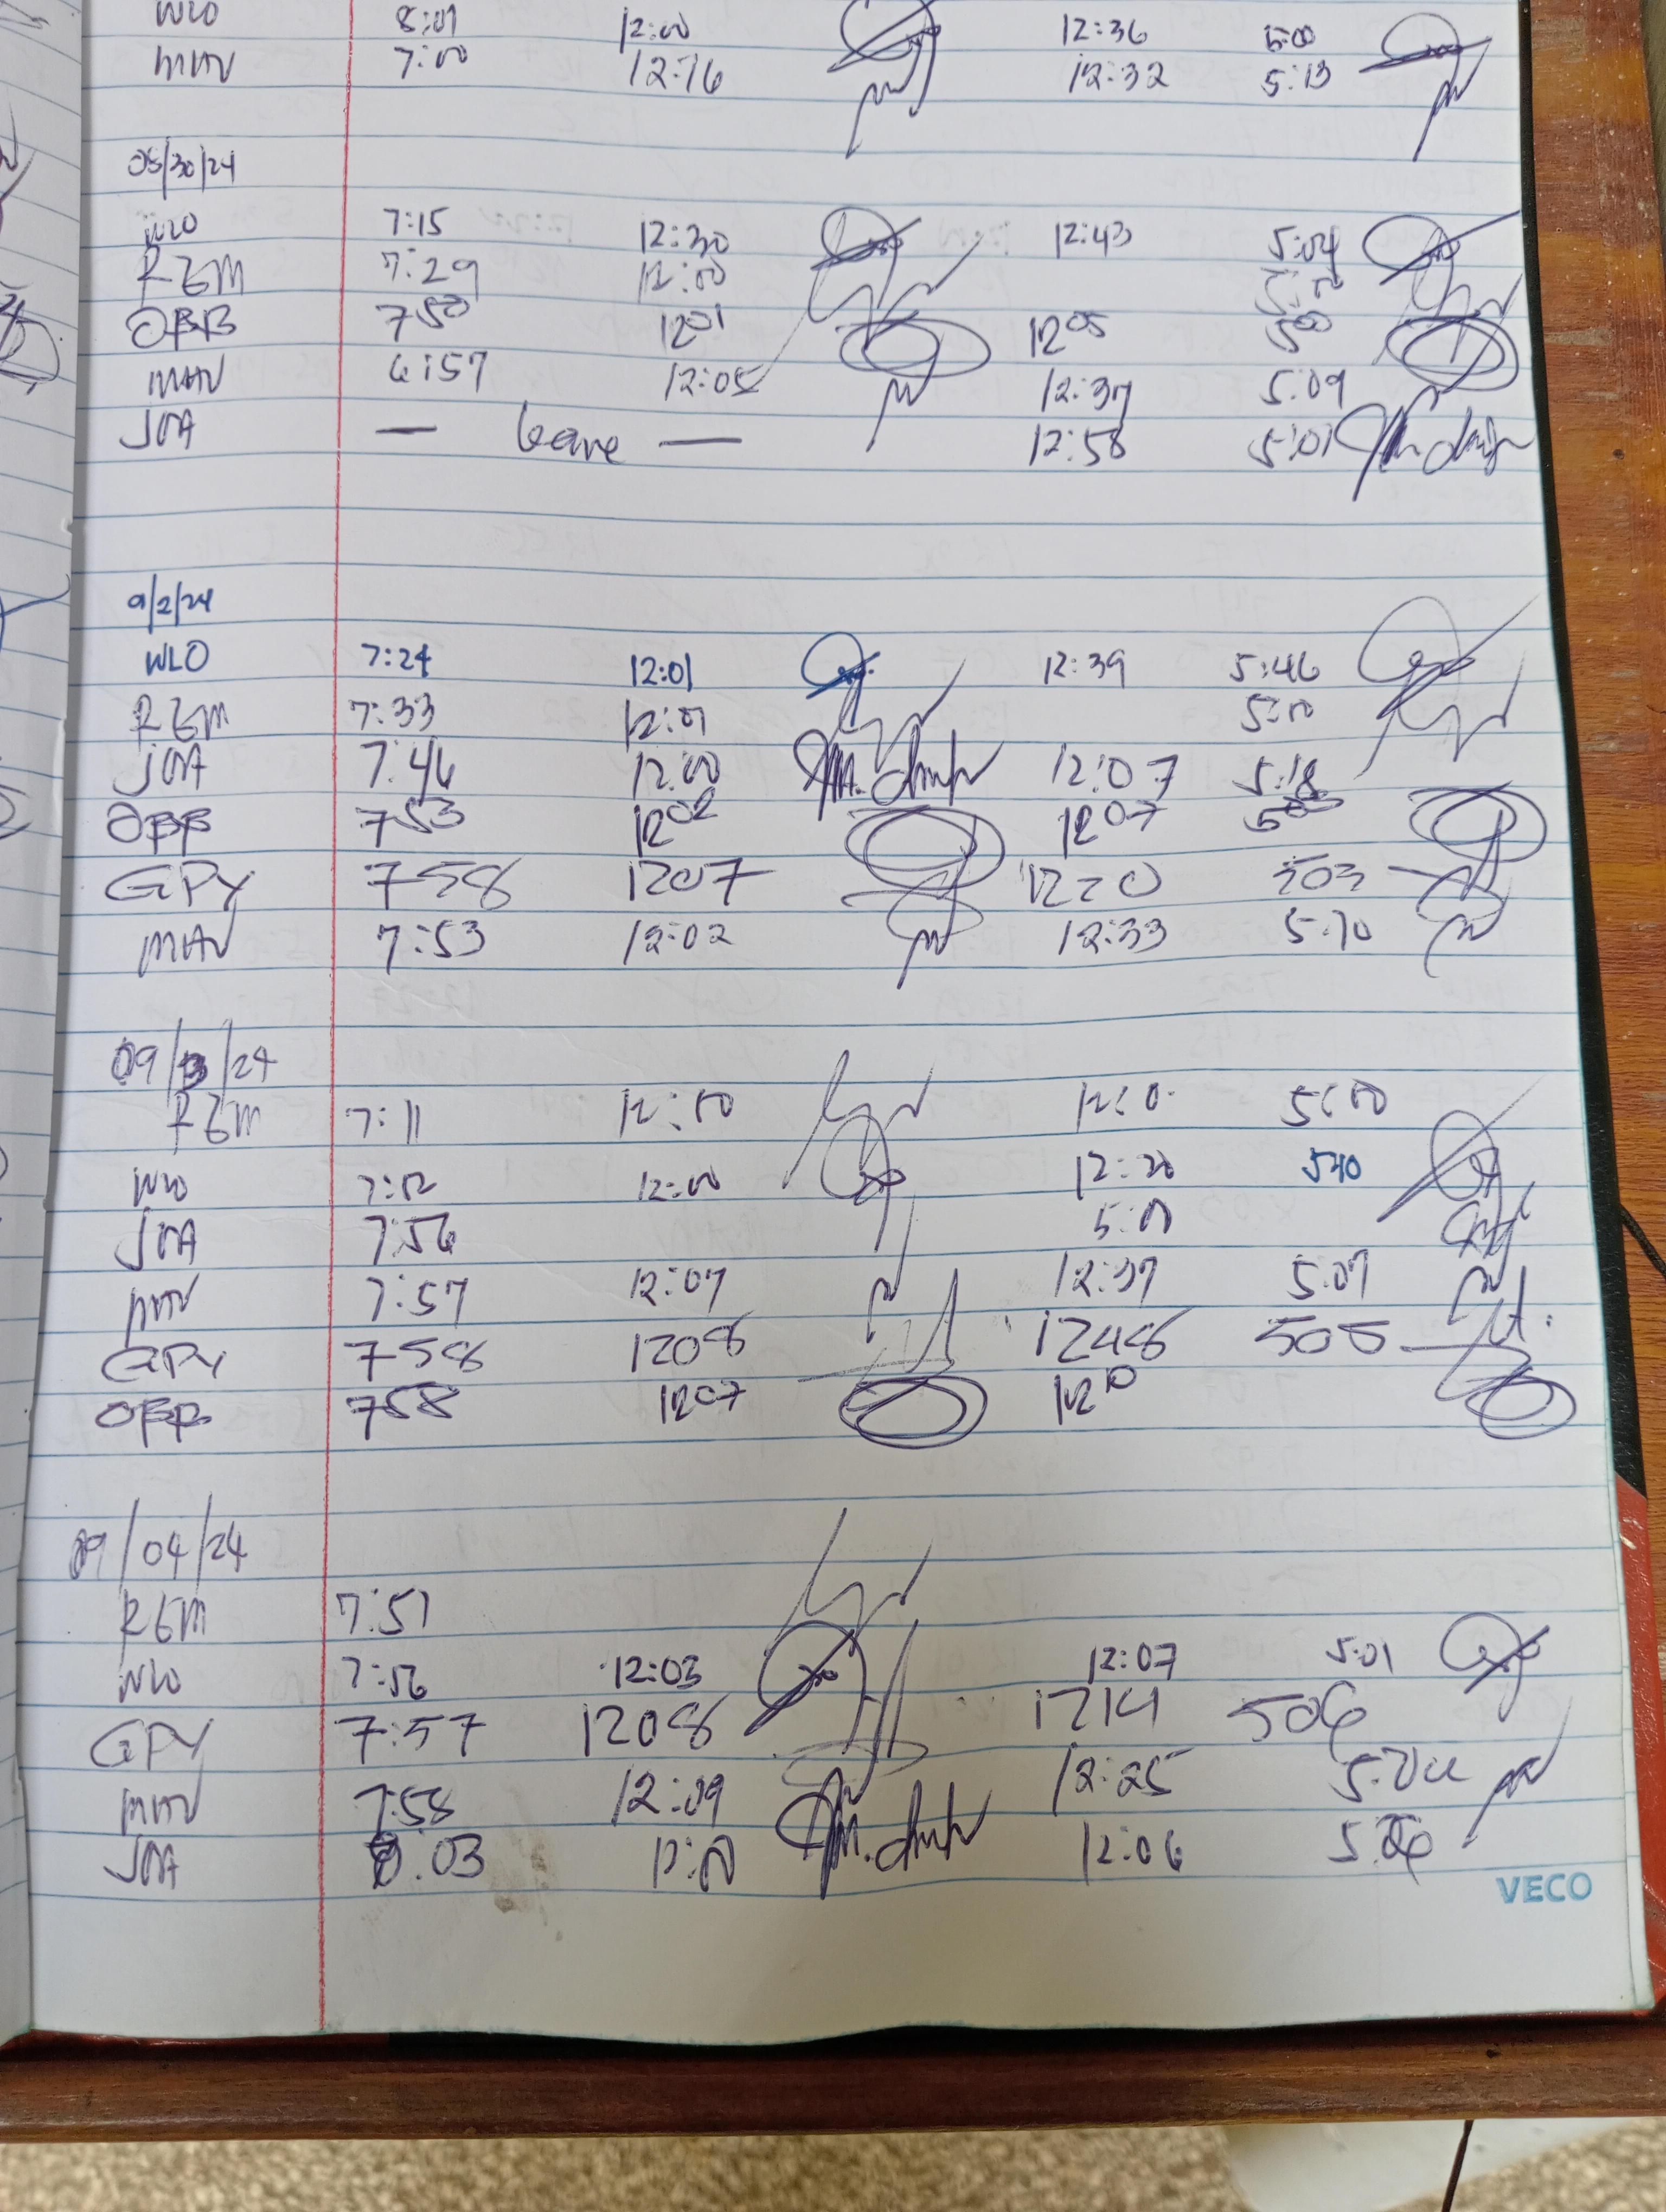 WLO 8:01 12:00 12:36 5:00
MAV 7:00 12:16 12:32 5:13
08/30/24
WLO 7:15 12:30 12:43 5:04
REM 7:29 12:00
OBB 750 1201 1205 500
MAV 6:57 12:05 12:37 5:09
JOA — leave — 12:58 5:01
9/2/24
WLO 7:24 12:01 12:39 5:46
REM 7:33 12:01 5:00
JOA 7:46 12:00 12:07 5:18
OBB 753 1202 1207
GPY 758 1207 1220 503
MAV 7:53 12:02 12:33 5:10
09/3/24
REM 7:11 12:00 5:00
WLO 7:12 12:00 12:20 540
JOA 7:56 5:00
MAV 7:57 12:07 12:37 5:07
GPY 758 1208 1248 505
OBB 758 1207 1210
09/04/24
REM 7:51
WLO 7:56 12:03 12:07 5:01
GPY 7:57 1208 1214 506
MAV 7:58 12:09 12:25
JOA 8:03 12:00 12:06
VECO